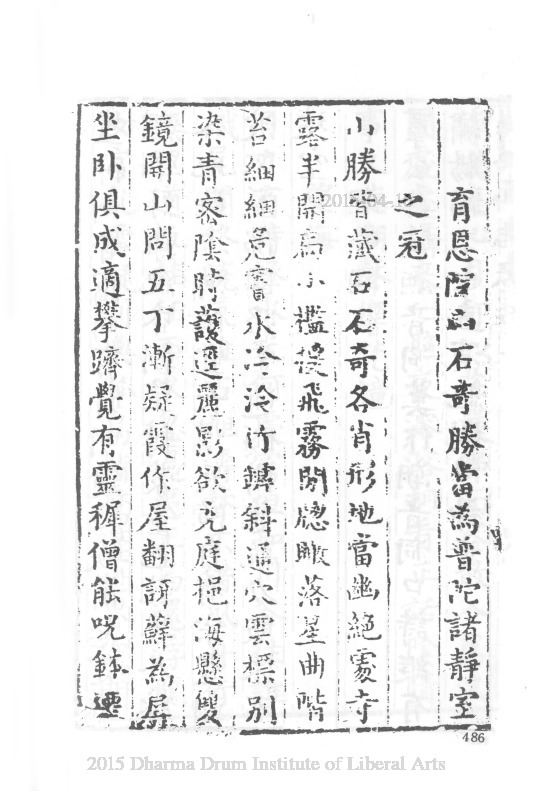 育恩院山石奇勝當為普陀諸靜室
之冠
山勝皆藏石石奇各肖形地當幽絕處寺
露半開扃小檻接飛霧閒牕瞰落星曲階
苔細細危竇水泠泠竹罅斜通穴雲標別
染青密陰時護逕麗影欲充庭挹海懸雙
鏡開山問五丁漸疑霞作屋翻訝蘚為屏
坐卧俱成適攀躋覺有靈穉僧能咒鉢
486
2015 Dharma Drum Institute of Liberal Arts